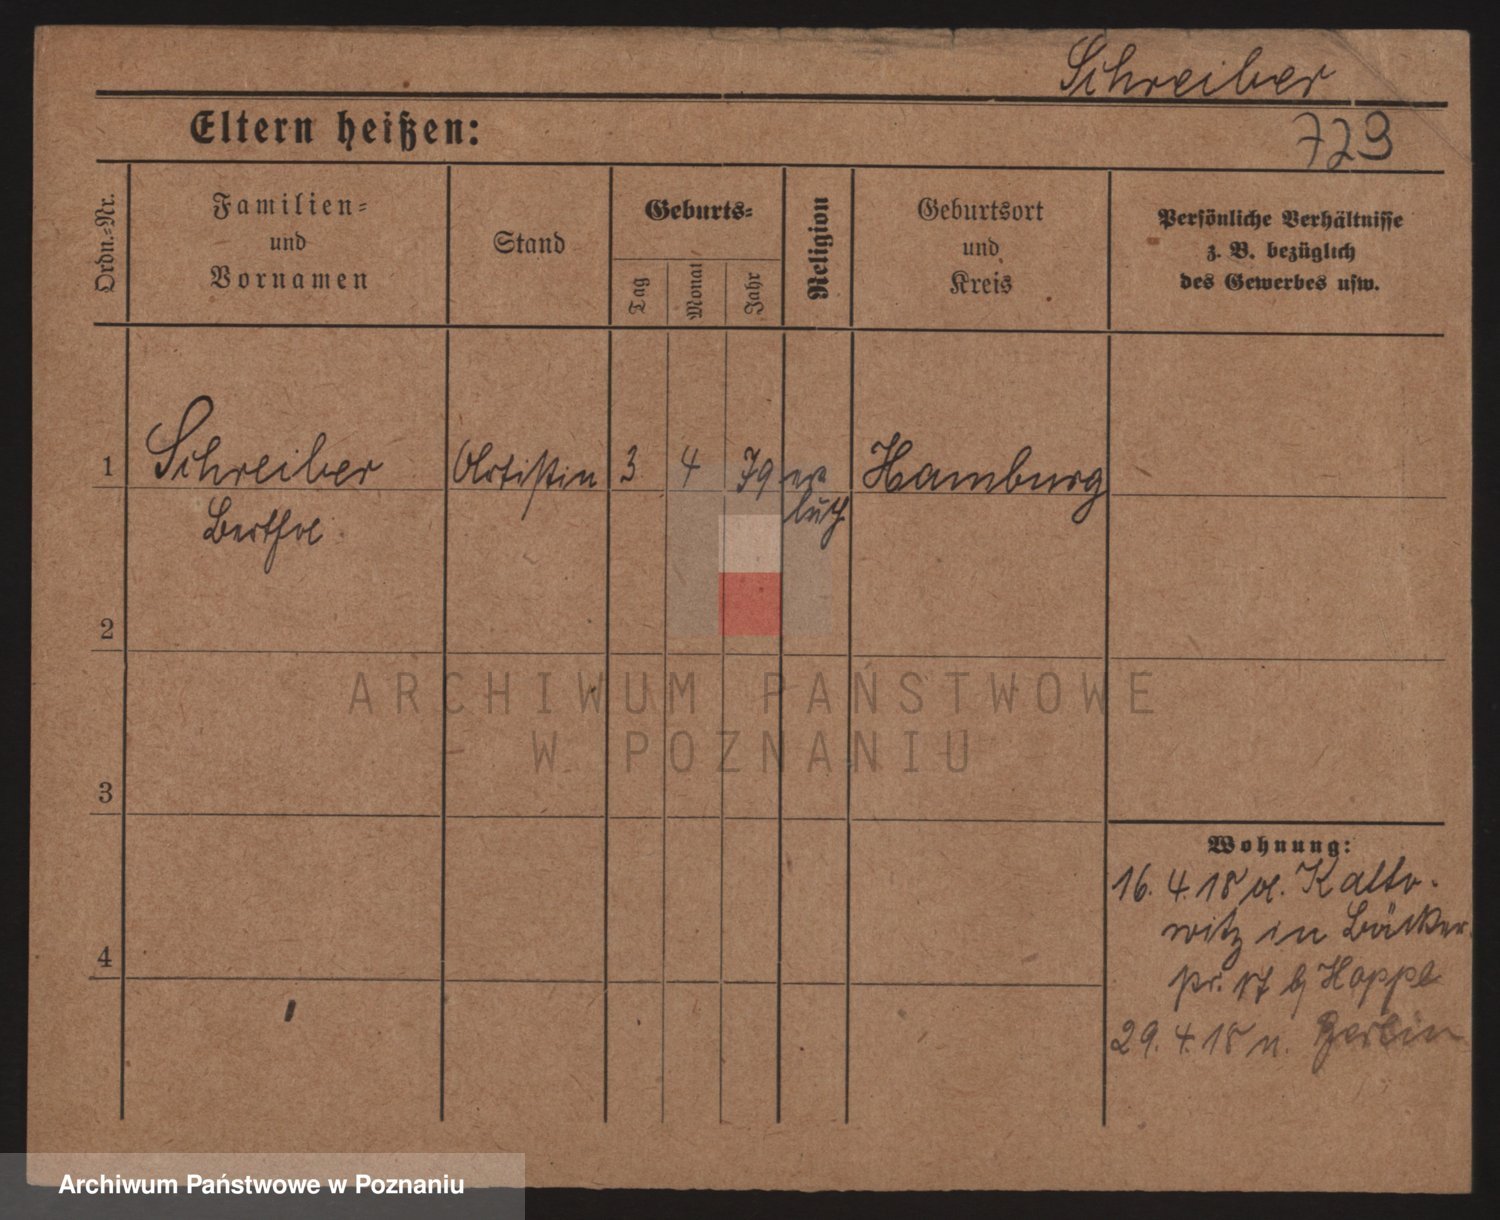 Schreiber
Eltern heißen:
729
Ordn.-Nr.
Familien-
und
Vornamen
Stand
Geburts-
Tag
Monat
Jahr
Religion
Geburtsort
und
Kreis
Persönliche Verhältnisse
z. B. bezüglich
des Gewerbes usw.
1
Schreiber
Artistin
3
4
79
ev
luth
Hamburg
Bertha
2
ARCHIWUM PAŃSTWOWE
W POZNANIU
3
Wohnung:
16. 4. 18 a. Katto-
witz in Bäcker
4
str. 17 b/ Hoppe
29. 4. 18 n. Berlin
Archiwum Państwowe w Poznaniu